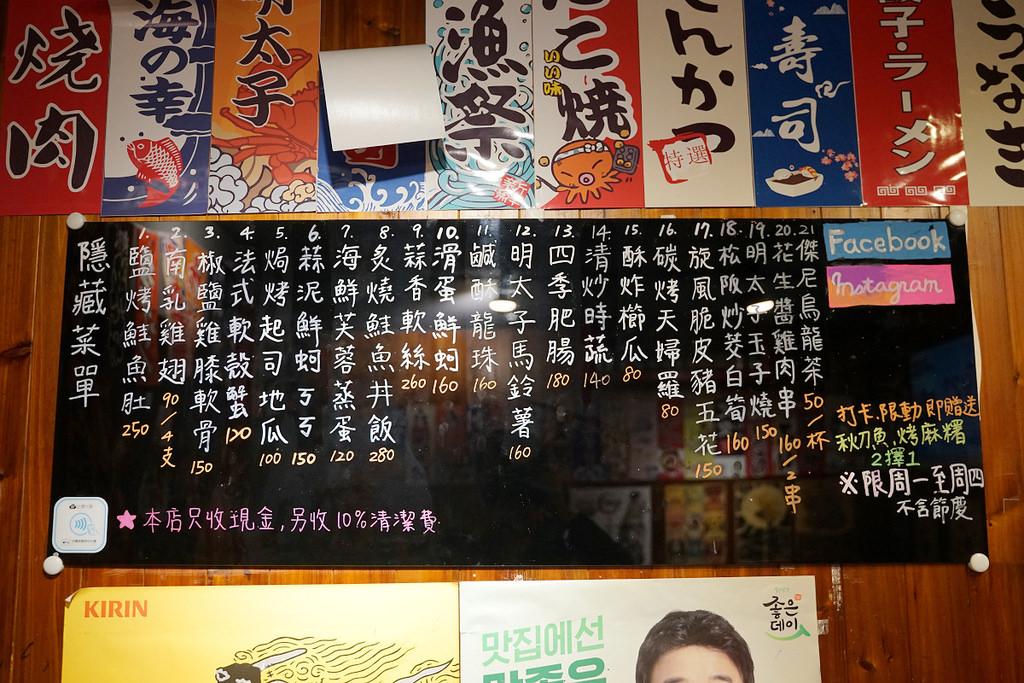 焼肉
海の幸
明太子
漁祭
新鮮
たこ焼
いい味
とんかつ
特選
寿司
餃子・ラーメン
うなぎ
隱藏菜單
1. 鹽烤鮭魚肚 250
2. 南乳雞翅 90/4支
3. 椒鹽雞膝軟骨 150
4. 法式軟殼蟹 120
5. 焗烤起司地瓜 100
6. 蒜泥鮮蚵ㄎㄎ 150
7. 海鮮芙蓉蒸蛋 120
8. 炙燒鮭魚丼飯 280
9. 蒜香軟絲 260
10. 滑蛋鮮蚵 160
11. 鹹酥龍珠 160
12. 明太子馬鈴薯 160
13. 四季肥腸 180
14. 清炒時蔬 140
15. 酥炸櫛瓜 80
16. 碳烤天婦羅 80
17. 旋風脆皮豬五花 150
18. 松阪炒茭白筍 160
19. 明太子玉子燒 150
20. 花生醬雞肉串 160/2串
21. 傑尼烏龍茶 50/杯
Facebook
Instagram
打卡.限動即贈送
秋刀魚.烤麻糬
2擇1
※限周一至周四
不含節慶
★本店只收現金,另收10%清潔費
KIRIN
맛집에선
맛좋은
좋은
데이